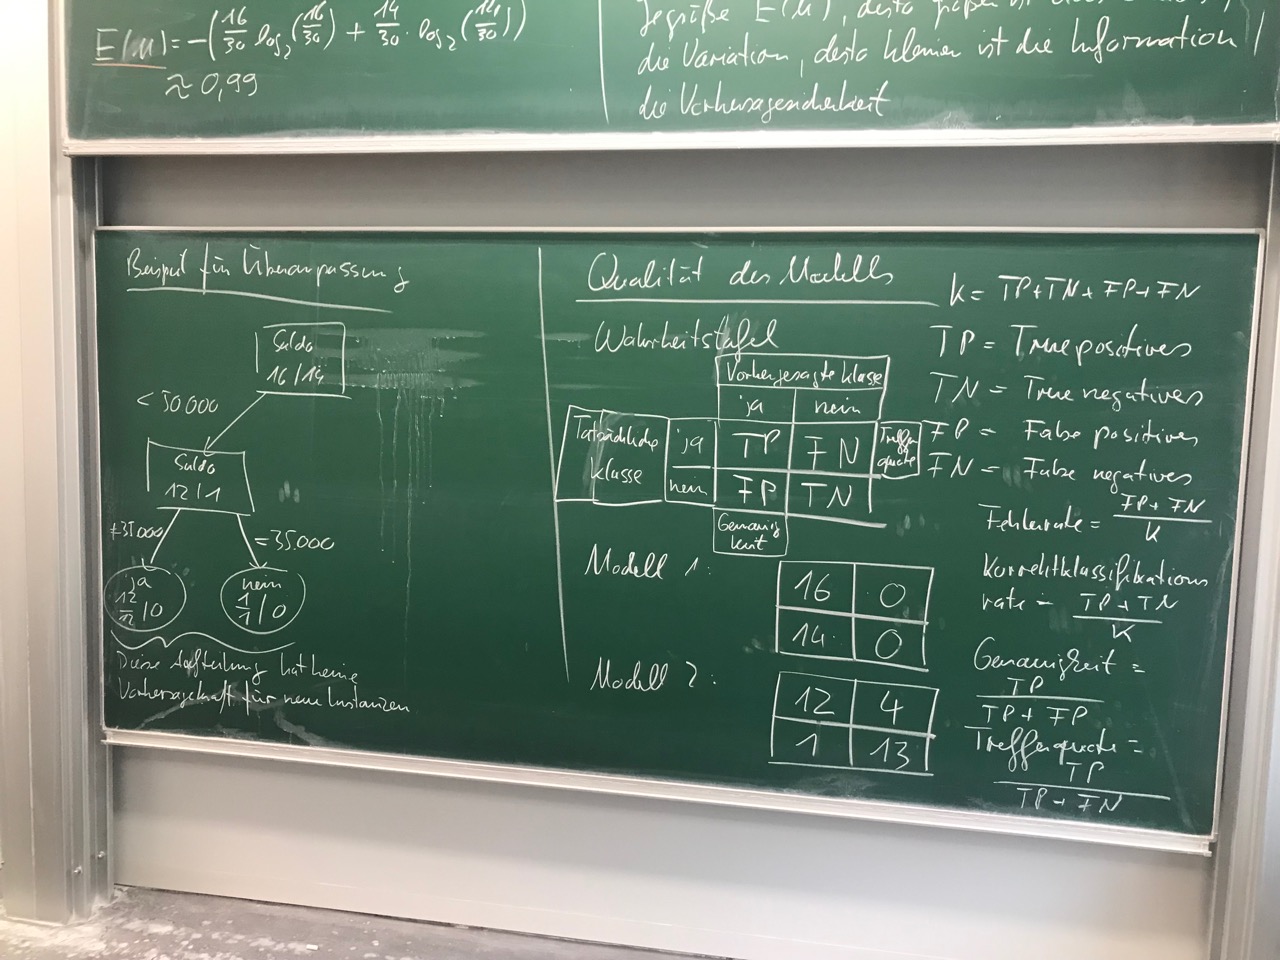 E(M) = -(16/30 log₂(16/30) + 14/30 · log₂(14/30))
≈ 0,99
Je größe E(M), desto
die Variation, desto kleiner ist die Information /
die Vorhersagesicherheit
Beispiel für Überanpassung
Saldo
16/14
< 50 000
Saldo
12/1
≠35.000
= 35.000
ja
12/12 / 0
nein
1/1 / 0
Diese Aufteilung hat keine
Vorhersagekraft für neue Instanzen
Qualität des Modells
Wahrheitstafel
Vorhergesagte Klasse
ja nein
Tatsächliche Klasse
ja TP FN
Treffer quote
nein FP TN
Genauig keit
Modell 1:
16 0
14 0
Modell 2:
12 4
1 13
K = TP+TN+FP+FN
TP = True positives
TN = True negatives
FP = False positives
FN = False negatives
Fehlerrate = FP + FN / K
Korrektklassifikations
rate = TP + TN / K
Genauigkeit =
TP
TP + FP
Trefferquote =
TP
TP + FN